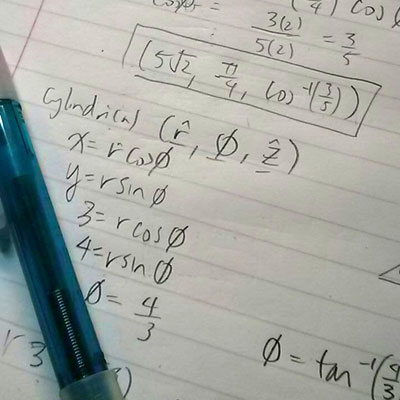 cos φ
3(2)/5(2) = 3/5
(5√2, π/4, cos⁻¹(3/5))
Cylindrical (r̂, φ, ẑ)
x = r cos φ
y = r sin φ
3 = r cos φ
4 = r sin φ
φ = 4/3
r 3
φ = tan⁻¹(4/3